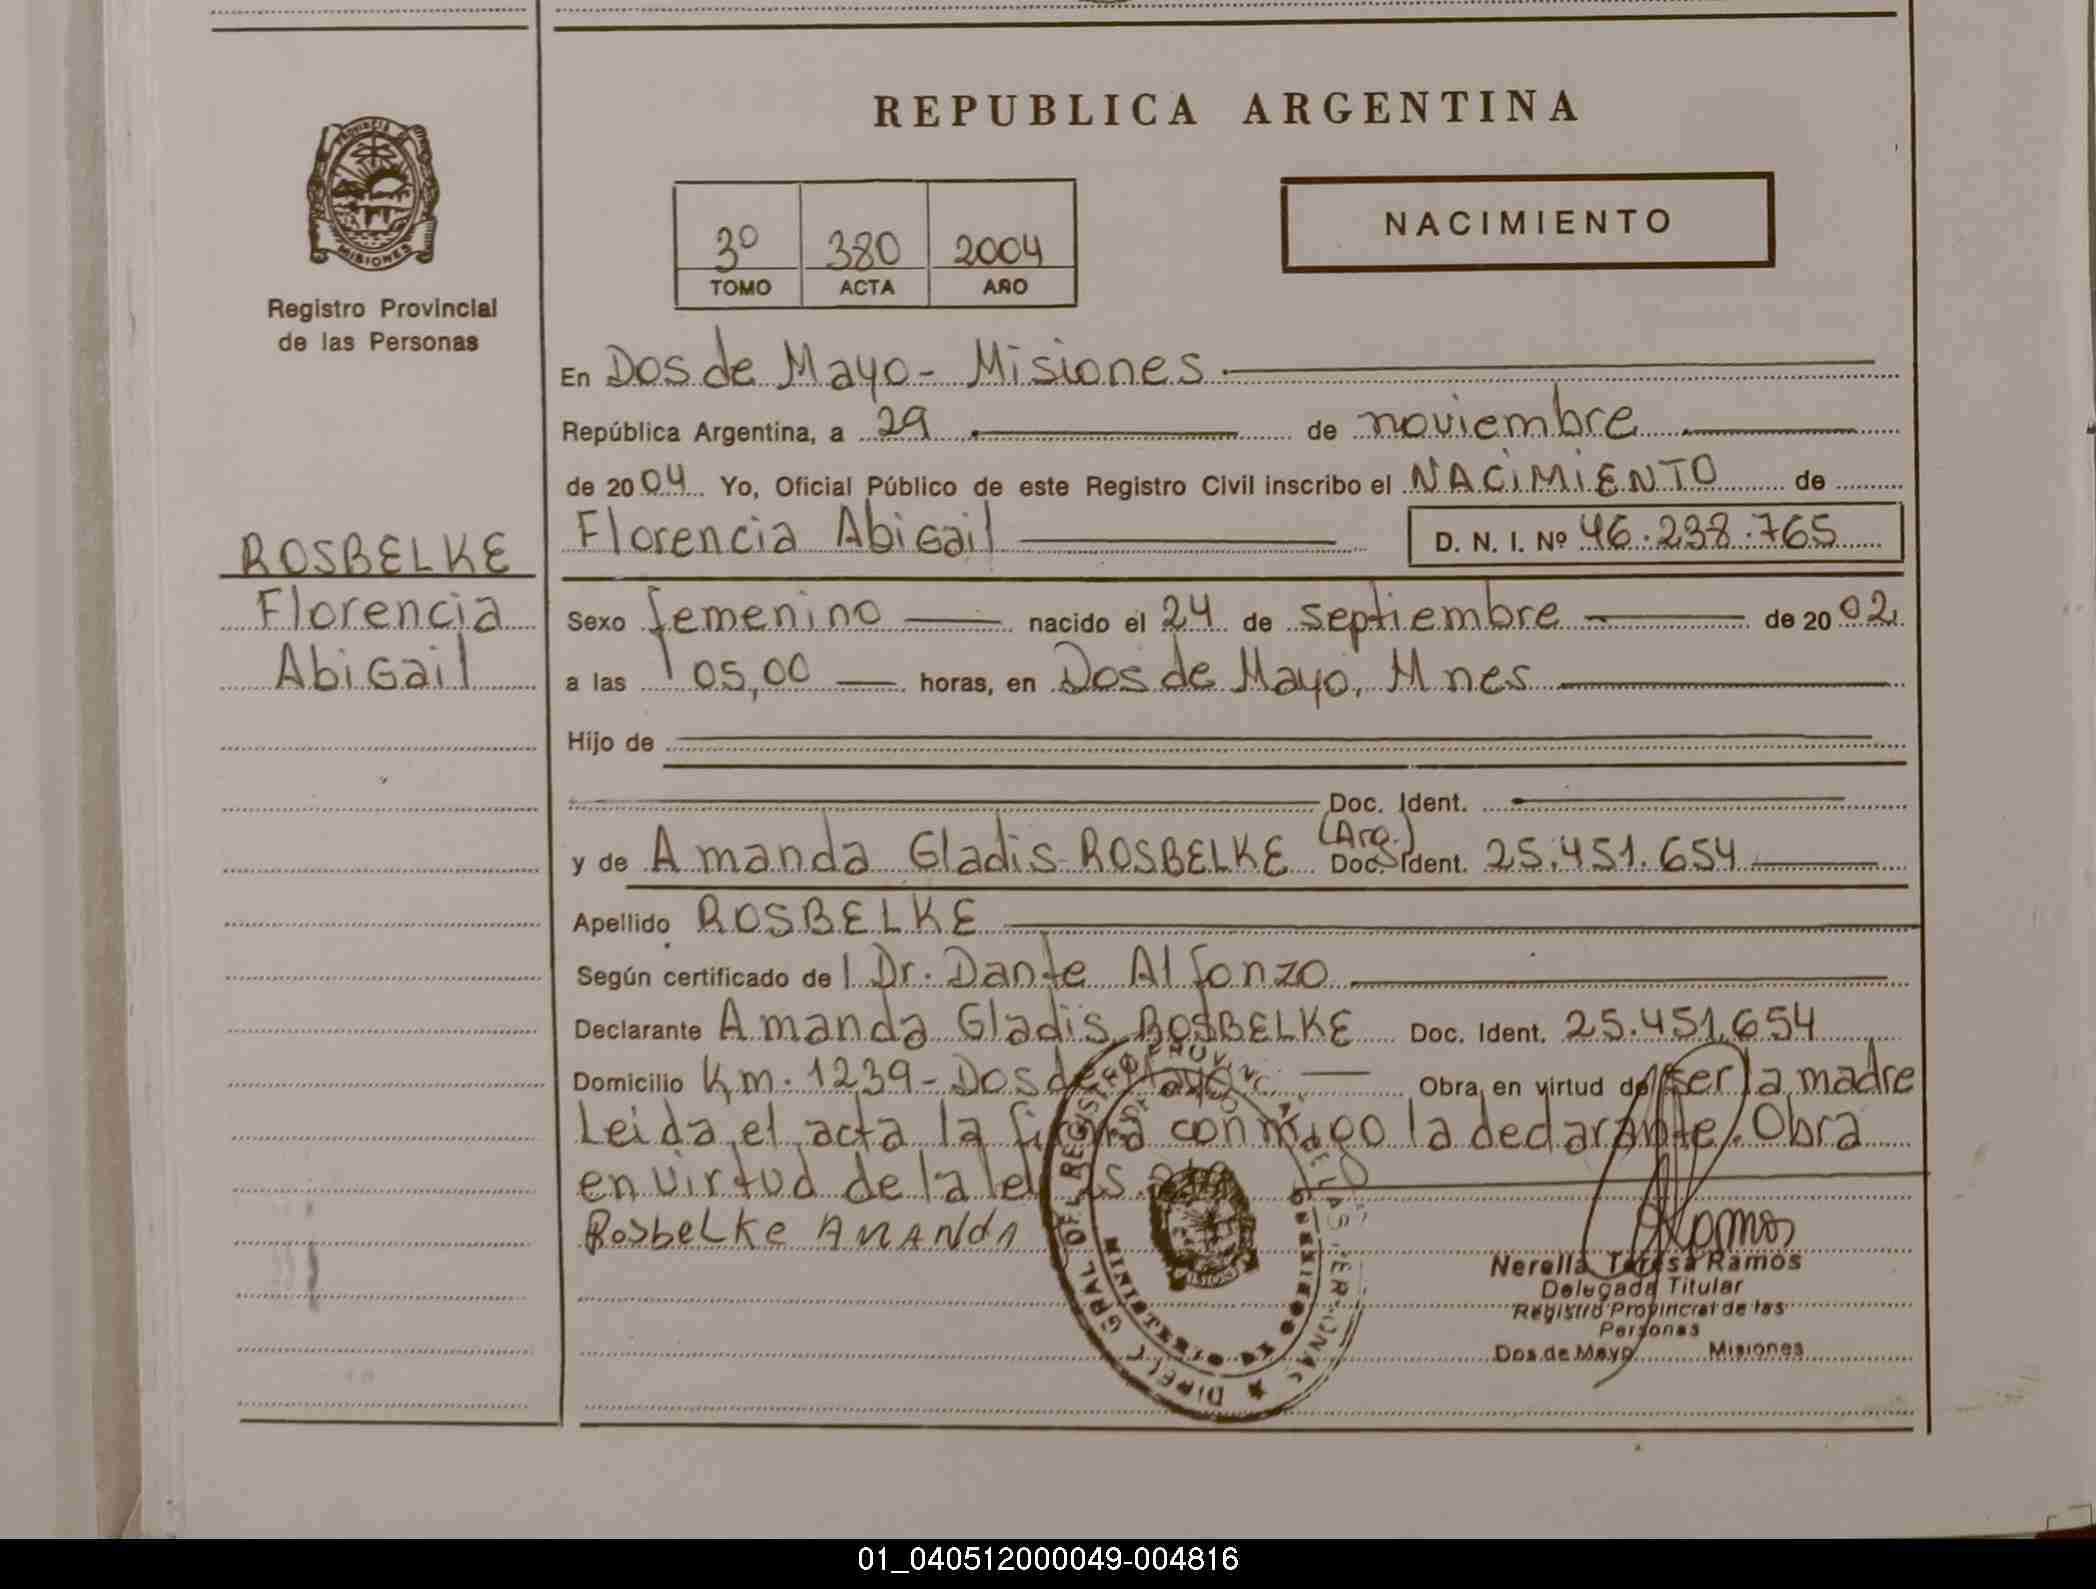 REPUBLICA ARGENTINA
PROVINCIA DE
MISIONES
Registro Provincial
de las Personas
3º 380 2004
TOMO ACTA AÑO
NACIMIENTO
En Dos de Mayo - Misiones
República Argentina, a 29 de noviembre
de 2004 Yo, Oficial Público de este Registro Civil inscribo el NACIMIENTO de
ROSBELKE
Florencia
Abigail
Florencia Abigail D. N. I. Nº 46.238.765
Sexo femenino nacido el 24 de septiembre de 2002
a las 05,00 horas, en Dos de Mayo, Mnes
Hijo de
Doc. Ident.
(Arg.)
y de Amanda Gladis ROSBELKE Doc. Ident. 25.451.654
Apellido ROSBELKE
Según certificado del Dr. Dante Alfonzo
Declarante Amanda Gladis ROSBELKE Doc. Ident. 25.451.654
Domicilio Km. 1239 - Dos de Mayo Obra en virtud de ser la madre
Leida el acta la firma conmigo la declarante. Obra
en virtud de la ley
Rosbelke AMANDA
Ramos
Nerella Teresa Ramos
Delegada Titular
Registro Provincial de las
Personas
Dos de Mayo Misiones
GRAL DEL REGISTRO PROVINC. DE LAS PERSONAS
MINISTERIO DE GOBIERNO
01_040512000049-004816